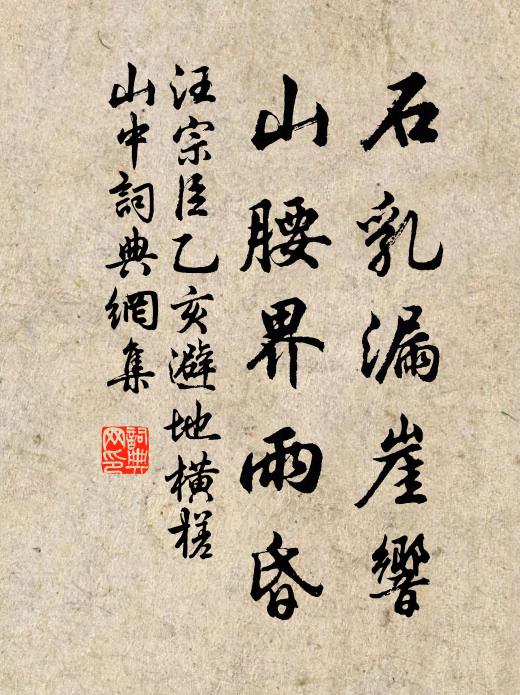 石乳漏崖響
山腰界雨昏
汪宗臣乙亥避地橫槎
山中詞典網集
詞典網印